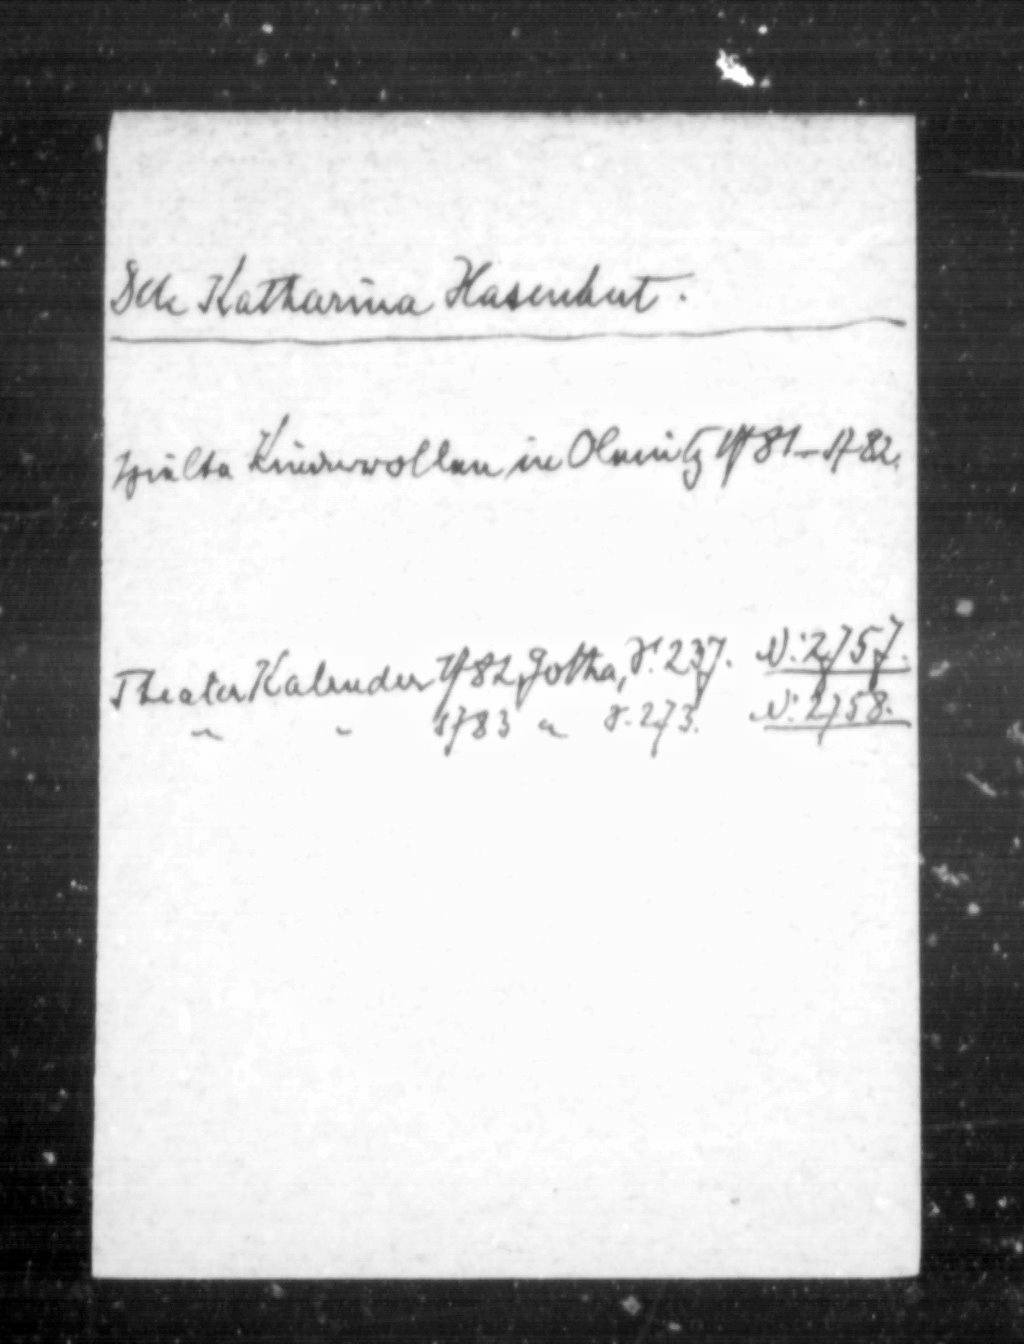 Dlle Katharina Hasenhut.
spielte Kinderrollen in Olmütz 1781–1782.
Theater Kalender 1782, Gotha, S. 237. N: 2757.
" " 1783 " S. 273. N: 2758.